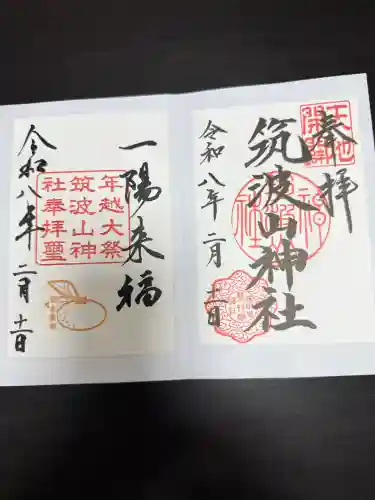 奉拝
天地開闢
筑波山神社
令和八年二月十一日
一陽来福
年越大祭
筑波山神
社奉拝璽
令和八年二月十一日